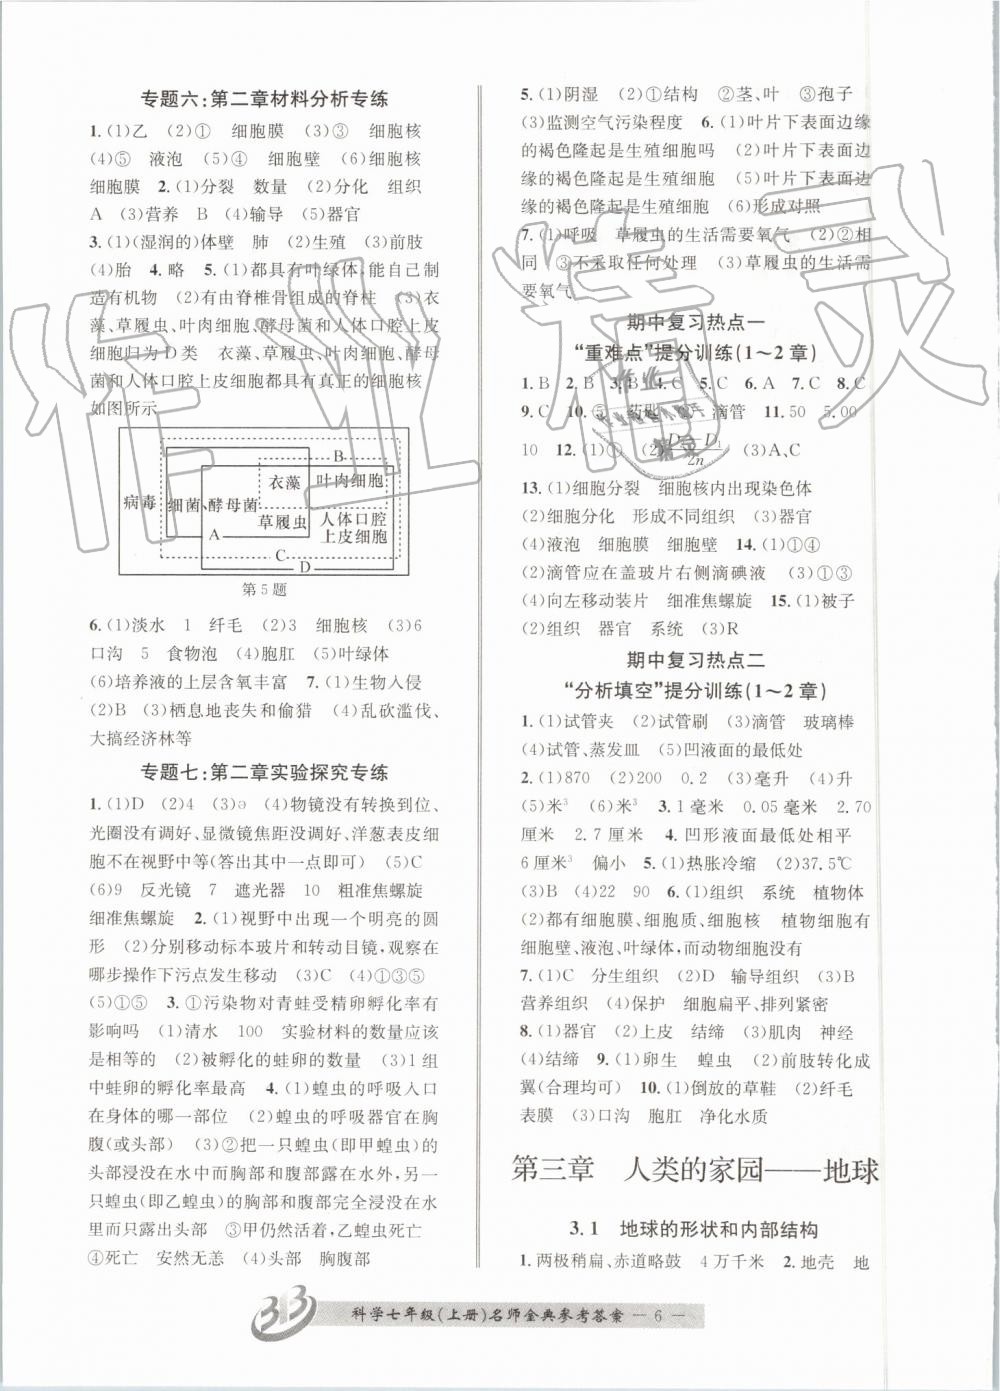 专题六:第二章材料分析专练
1.(1)乙 (2)① 细胞膜 (3)③ 细胞核
(4)⑤ 液泡 (5)④ 细胞壁 (6)细胞核
细胞膜 2.(1)分裂 数量 (2)分化 组织
A (3)营养 B (4)输导 (5)器官
3.(1)(湿润的)体壁 肺 (2)生殖 (3)前肢
(4)胎 4.略 5.(1)都具有叶绿体,能自己制
造有机物 (2)有由脊椎骨组成的脊柱 (3)衣
藻、草履虫、叶肉细胞、酵母菌和人体口腔上皮
细胞归为D类 衣藻、草履虫、叶肉细胞、酵母
菌和人体口腔上皮细胞都具有真正的细胞核
如图所示
病毒 细菌、酵母菌 衣藻 叶肉细胞 草履虫 人体口腔
上皮细胞
A B C D
第5题
6.(1)淡水 1 纤毛 (2)3 细胞核 (3)6
口沟 5 食物泡 (4)胞肛 (5)叶绿体
(6)培养液的上层含氧丰富 7.(1)生物入侵
(2)B (3)栖息地丧失和偷猎 (4)乱砍滥伐、
大搞经济林等
专题七:第二章实验探究专练
1.(1)D (2)4 (3)ə (4)物镜没有转换到位、
光圈没有调好、显微镜焦距没调好、洋葱表皮细
胞不在视野中等(答出其中一点即可) (5)C
(6)9 反光镜 7 遮光器 10 粗准焦螺旋
细准焦螺旋 2.(1)视野中出现一个明亮的圆
形 (2)分别移动标本玻片和转动目镜,观察在
哪步操作下污点发生移动 (3)C (4)①③⑤
(5)①⑤ 3.①污染物对青蛙受精卵孵化率有
影响吗 (1)清水 100 实验材料的数量应该
是相等的 (2)被孵化的蛙卵的数量 (3)1组
中蛙卵的孵化率最高 4.(1)蝗虫的呼吸入口
在身体的哪一部位 (2)蝗虫的呼吸器官在胸
腹(或头部) (3)②把一只蝗虫(即甲蝗虫)的
头部浸没在水中而胸部和腹部露在水外,另一
只蝗虫(即乙蝗虫)的胸部和腹部完全浸没在水
里而只露出头部 ③甲仍然活着,乙蝗虫死亡
④死亡 安然无恙 (4)头部 胸腹部
5.(1)阴湿 (2)①结构 ②茎、叶 ③孢子
(3)监测空气污染程度 6.(1)叶片下表面边缘
的褐色隆起是生殖细胞吗 (2)叶片下表面边
缘的褐色隆起是生殖细胞 (5)叶片下表面边
缘的褐色隆起是生殖细胞 (6)形成对照
7.(1)呼吸 草履虫的生活需要氧气 (2)②相
同 ③不采取任何处理 (3)草履虫的生活需
要氧气
期中复习热点一
“重难点”提分训练(1~2章)
1.B 2.B 3.B 4.C 5.C 6.A 7.C 8.C
9.C 10.⑤ 药匙 ② 滴管 11.50 5.00
10 12.(1)① (2)D₂-D₁/2n (3)A、C
13.(1)细胞分裂 细胞核内出现染色体
(2)细胞分化 形成不同组织 (3)器官
(4)液泡 细胞膜 细胞壁 14.(1)①④
(2)滴管应在盖玻片右侧滴碘液 (3)①③
(4)向左移动装片 细准焦螺旋 15.(1)被子
(2)组织 器官 系统 (3)R
期中复习热点二
“分析填空”提分训练(1~2章)
1.(1)试管夹 (2)试管刷 (3)滴管 玻璃棒
(4)试管、蒸发皿 (5)凹液面的最低处
2.(1)870 (2)200 0.2 (3)毫升 (4)升
(5)米³ (6)米³ 3.1毫米 0.05毫米 2.70
厘米 2.7厘米 4.凹形液面最低处相平
6厘米³ 偏小 5.(1)热胀冷缩 (2)37.5℃
(3)B (4)22 90 6.(1)组织 系统 植物体
(2)都有细胞膜、细胞质、细胞核 植物细胞有
细胞壁、液泡、叶绿体,而动物细胞没有
7.(1)C 分生组织 (2)D 输导组织 (3)B
营养组织 (4)保护 细胞扁平、排列紧密
8.(1)器官 (2)上皮 结缔 (3)肌肉 神经
(4)结缔 9.(1)卵生 蝗虫 (2)前肢转化成
翼(合理均可) 10.(1)倒放的草鞋 (2)纤毛
表膜 (3)口沟 胞肛 净化水质
第三章 人类的家园——地球
3.1 地球的形状和内部结构
1.两极稍扁、赤道略鼓 4万千米 2.地壳 地
科学七年级(上册)名师金典参考答案 — 6 —
作业精灵